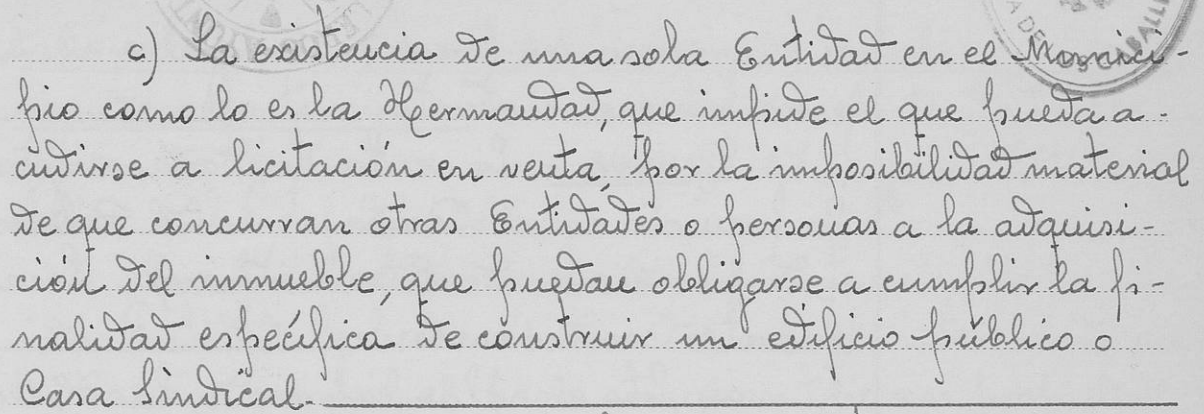 c) La existencia de una sola Entidad en el Munici-
pio como lo es la Hermandad, que impide el que pueda a-
cudirse a licitación en venta, por la imposibilidad material
de que concurran otras Entidades o personas a la adquisi-
ción del inmueble, que puedan obligarse a cumplir la fi-
nalidad específica de construir un edificio público o
Casa Sindical.